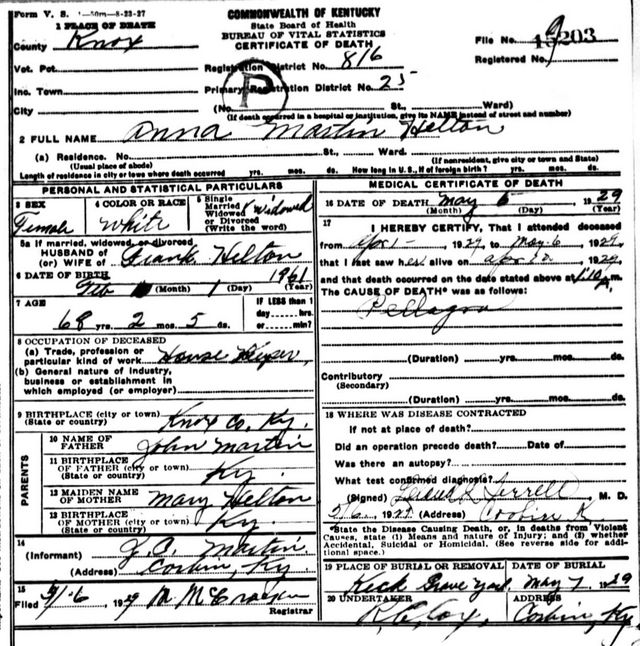 Form V. S. 1-50m-8-23-27
COMMONWEALTH OF KENTUCKY
State Board of Health
BUREAU OF VITAL STATISTICS
CERTIFICATE OF DEATH
1 PLACE OF DEATH
County Knox
File No. 203
Registered No. 9
Vot. Pct.
Registration District No. 816
Inc. Town
Primary Registration District No. 25
P
City (No. St., Ward)
(If death occurred in a hospital or institution, give its NAME instead of street and number)
2 FULL NAME Anna Martin Helton
(a) Residence. No. St., Ward.
(Usual place of abode) (If nonresident, give city or town and State)
Length of residence in city or town where death occurred yrs. mos. ds. How long in U. S., if of foreign birth? yrs. mos. ds.
PERSONAL AND STATISTICAL PARTICULARS
3 SEX Female
4 COLOR OR RACE White
5 Single Married Widowed or Divorced (Write the word) Widowed
5a If married, widowed, or divorced
HUSBAND of
(or) WIFE of Frank Helton
6 DATE OF BIRTH Feb 1 1961
(Month) (Day) (Year)
7 AGE
68 yrs. 2 mos. 5 ds.
IF LESS than 1
day hrs.
or min?
8 OCCUPATION OF DECEASED
(a) Trade, profession or
particular kind of work House Keeper
(b) General nature of industry,
business or establishment in
which employed (or employer)
9 BIRTHPLACE (city or town) Knox Co. Ky.
(State or country)
PARENTS
10 NAME OF
FATHER John Martin
11 BIRTHPLACE
OF FATHER (city or town) Ky.
(State or country)
12 MAIDEN NAME
OF MOTHER Mary Helton
13 BIRTHPLACE
OF MOTHER (city or town) Ky.
(State or country)
14
(Informant) J. C. Martin
(Address) Corbin, Ky
15
Filed 5/6 1929 M. McCracken
Registrar
MEDICAL CERTIFICATE OF DEATH
16 DATE OF DEATH May 6 1929
(Month) (Day) (Year)
17 I HEREBY CERTIFY, That I attended deceased
from Apr 1- 1929 to May 6 1929,
that I last saw her alive on Apr 30 1929,
and that death occurred on the date stated above at 1:10 P.m.
The CAUSE OF DEATH* was as follows:
Pellagra
(Duration) yrs. mos. ds.
Contributory
(Secondary)
(Duration) yrs. mos. ds.
18 WHERE WAS DISEASE CONTRACTED
If not at place of death?
Did an operation precede death? Date of
Was there an autopsy?
What test confirmed diagnosis?
(Signed) Terrell M. D.
5/6 1929 (Address) Corbin K
*State the Disease Causing Death, or, in deaths from Violent
Causes, state (1) Means and nature of Injury; and (2) whether
Accidental, Suicidal or Homicidal. (See reverse side for additional space.)
19 PLACE OF BURIAL OR REMOVAL DATE OF BURIAL
Keck Grave Yard, May 7 1929
20 UNDERTAKER ADDRESS
R.C. Cox, Corbin, Ky.